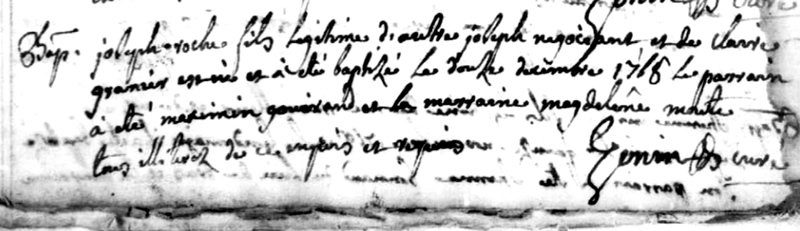 Bap. joseph roche fils legitime d'autre joseph negociant et de claire
granier est né et à eté baptizé le douze decembre 1768 le parrain
à eté maximin gouirand et la marraine magdelêne
tous illiterez de ce enquis et requis Genin Curé